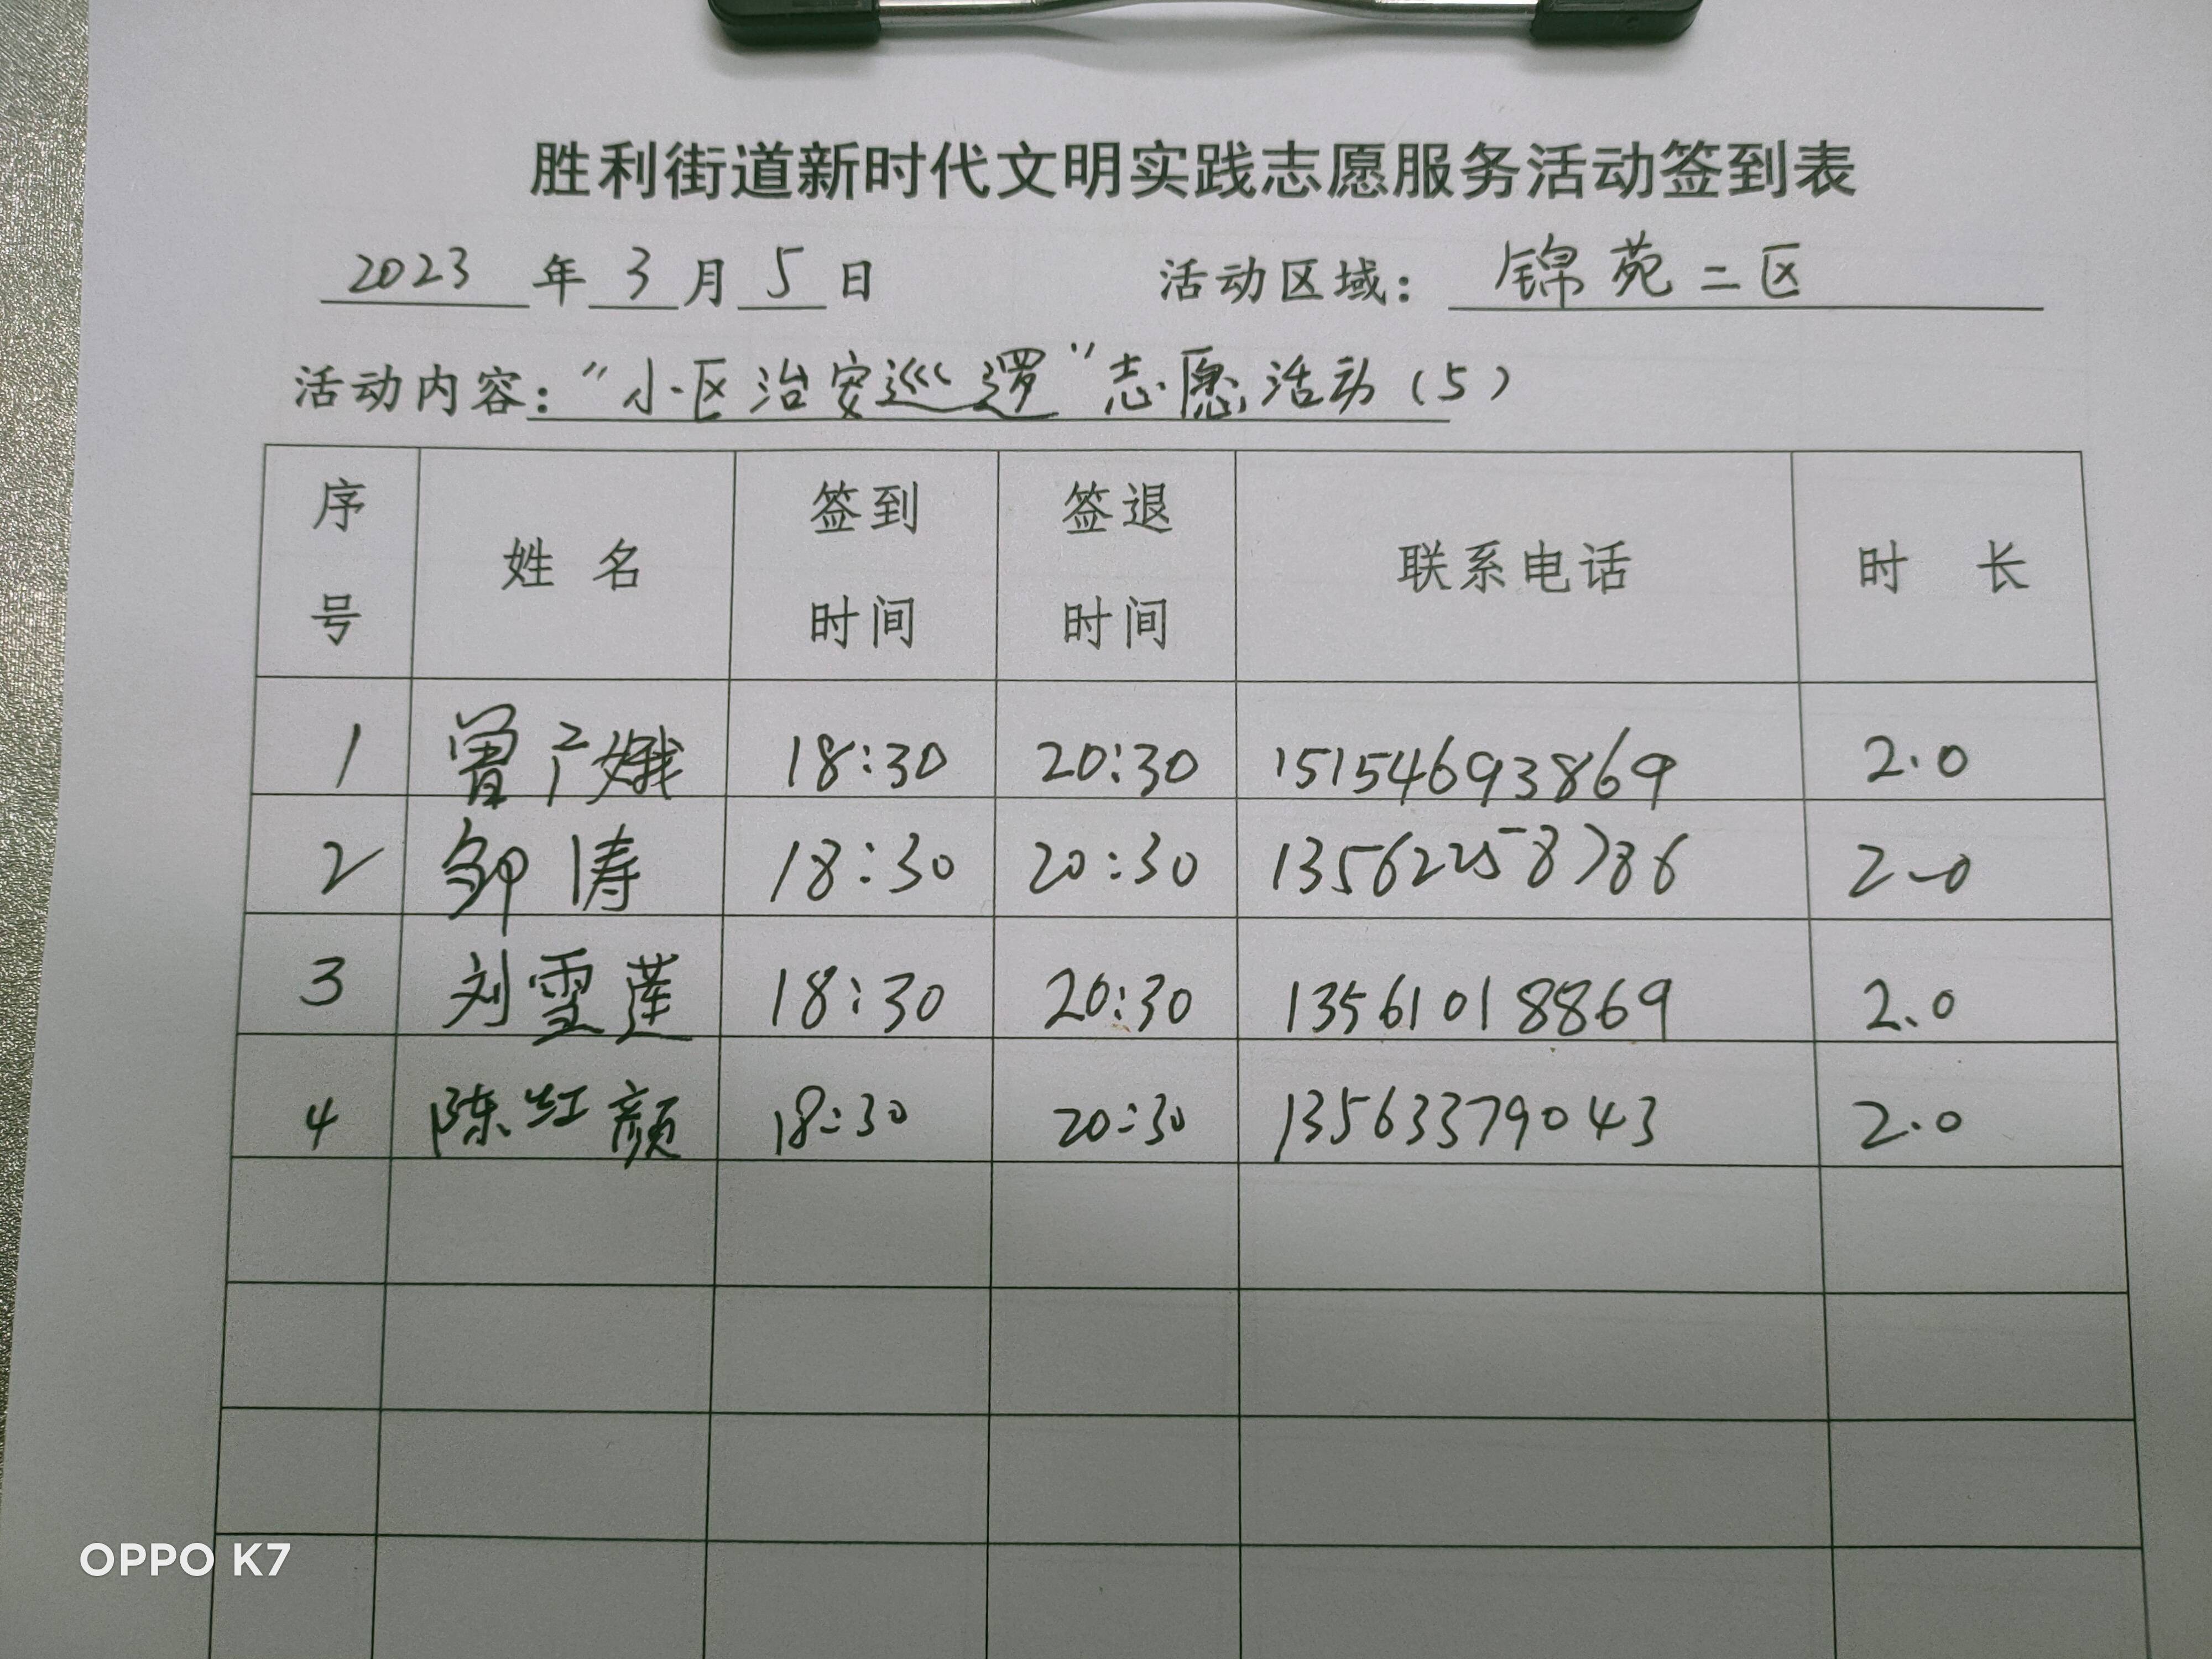 胜利街道新时代文明实践志愿服务活动签到表
2023 年 3 月 5 日 活动区域： 锦苑二区
活动内容："小区治安巡逻"志愿活动（5）
序号 姓 名 签到时间 签退时间 联系电话 时 长
1 曾广娥 18:30 20:30 15154693869 2.0
2 邹涛 18:30 20:30 13562258786 2.0
3 刘雪莲 18:30 20:30 13561018869 2.0
4 陈红颜 18:30 20:30 13563379043 2.0
OPPO K7